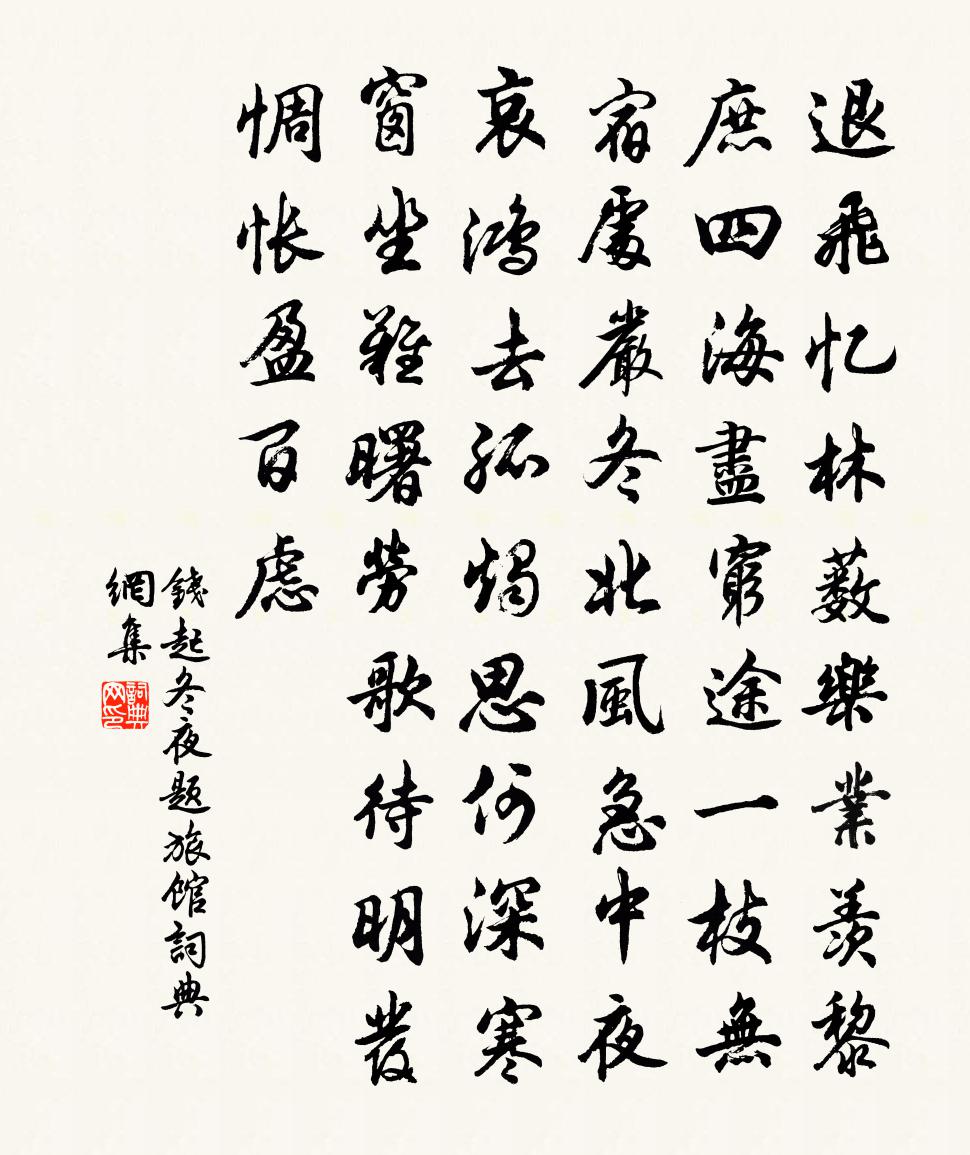 退飛忆林藪樂業羨黎
庶四海盡窮途一枝無
宿處嚴冬北風急中夜
哀鴻去孤燭思何深寒
窗坐難曙勞歌待明發
惆怅盈百慮
錢起冬夜题旅馆詞典
網集
詞典
网印